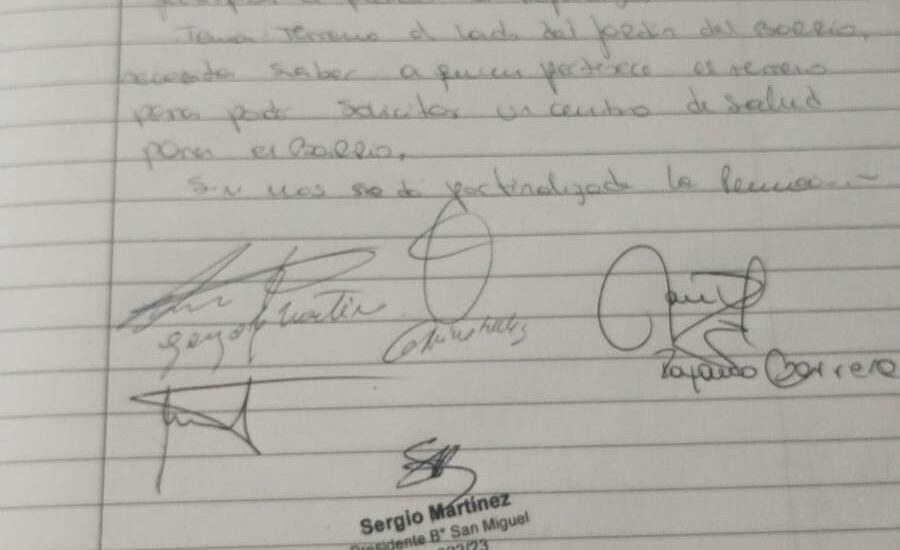 Tema: Terreno al lado del jardin del Barrio,
necesita saber a quien pertenece el terreno
para poder solicitar un centro de salud
para el Barrio.
Sin mas se da por finalizada la Reunion.-
Martin
Barrera
Sergio Martínez
Presidente B° San Miguel